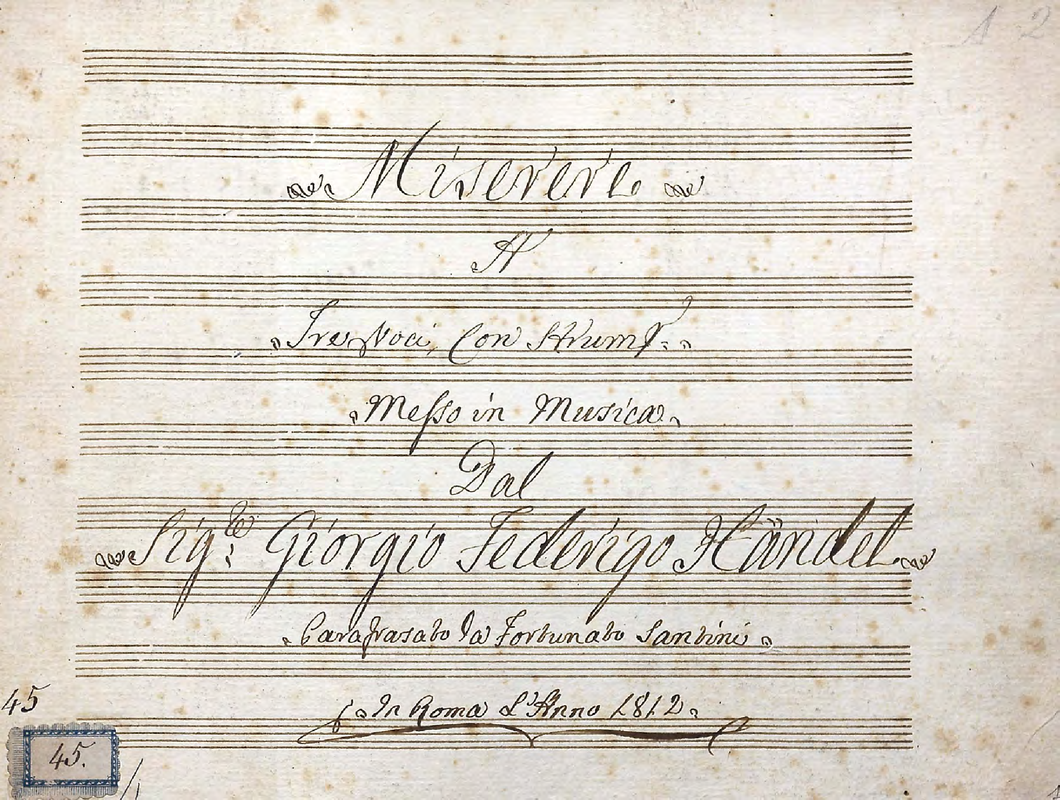 1 2
Miserere
A
Tre Voci, Con Strum.ti
Messo in Musica
Dal
Sig.re Giorgio Federigo Händel
Parafrasato da Fortunato Santini
In Roma L'Anno 1812
45
45.